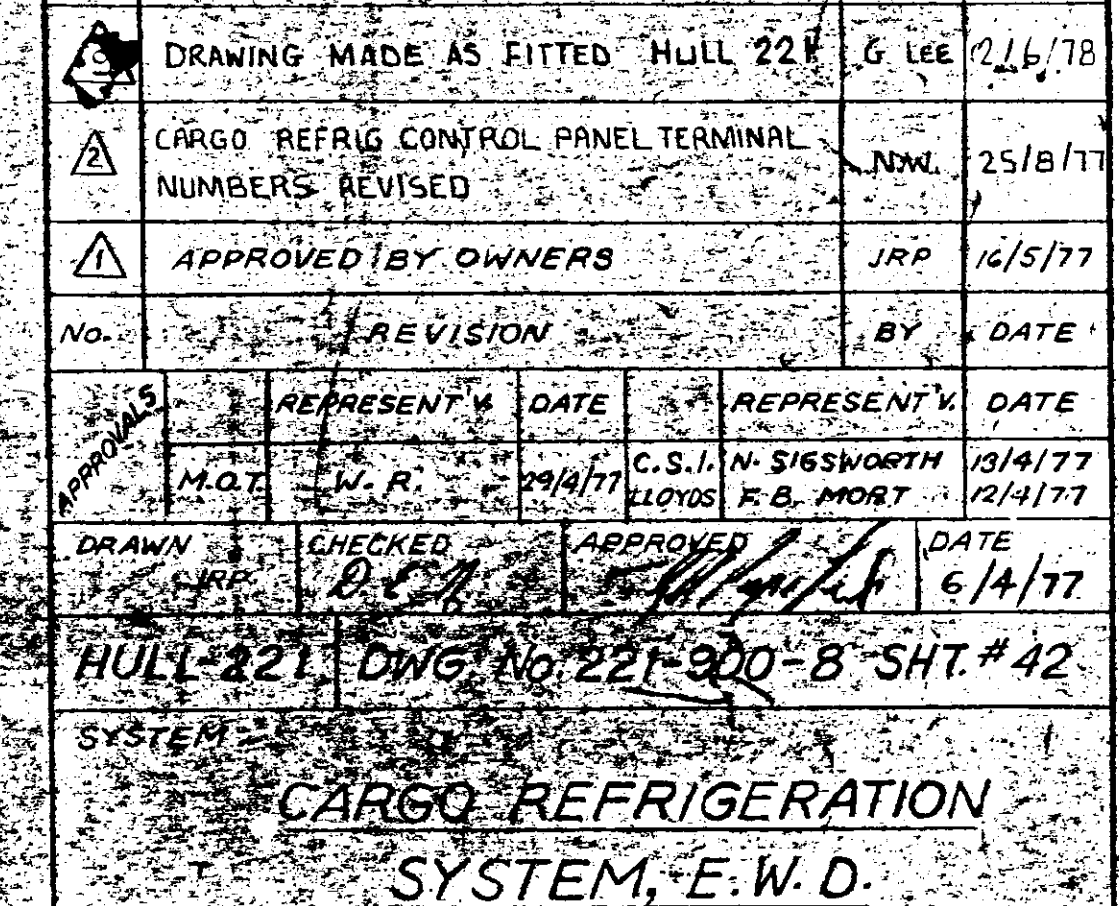 3 DRAWING MADE AS FITTED HULL 221 G LEE 2/6/78
2 CARGO REFRIG CONTROL PANEL TERMINAL
NUMBERS REVISED N.W. 25/8/77
1 APPROVED BY OWNERS JRP 16/5/77
No. REVISION BY DATE
APPROVALS REPRESENT'V. DATE REPRESENT'V. DATE
M.O.T. W. R. 29/4/77 C.S.I. N. SIGSWORTH 13/4/77
LLOYDS F. B. MORT 12/4/77
DRAWN CHECKED APPROVED DATE
JRP 6/4/77
HULL-221 DWG. No. 221-900-8 SHT. # 42
SYSTEM
CARGO REFRIGERATION
SYSTEM, E.W.D.